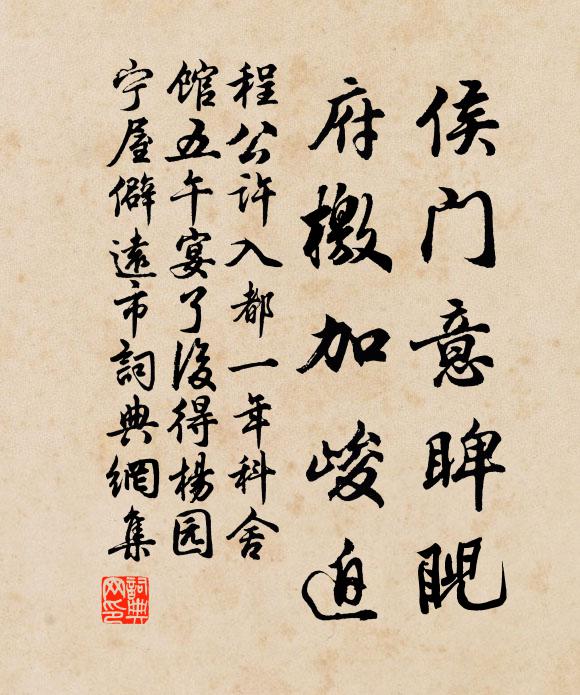 侯门意睥睨
府檄加峻迫
程公许入都一年科舍
馆五午宴了後得杨园
宁屋僻远市詞典網集
詞典网印